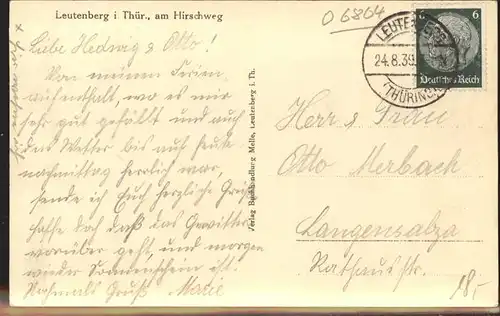 Leutenberg i Thür., am Hirschweg
O 6864
Liebe Hedwig & Otto!
Von meinem Ferien,
aufenthalt, wo es mir
sehr gut gefällt und auch
das Wetter bis auf heute
nachmittag herrlich war,
sende ich Euch herzliche Grüße
hoffe doch daß das Gewitter
vorüber geht, und morgen
wieder Sonnenschein ist.
Nochmals Gruß Marie
Verlag Buchhandlung Melle, Leutenberg i. Th.
LEUTENBERG
24.8.39
(THÜRINGEN)
6
Deutsches Reich
Herr & Frau
Otto Merbach
Langensalza
Rathausstr.
18,-